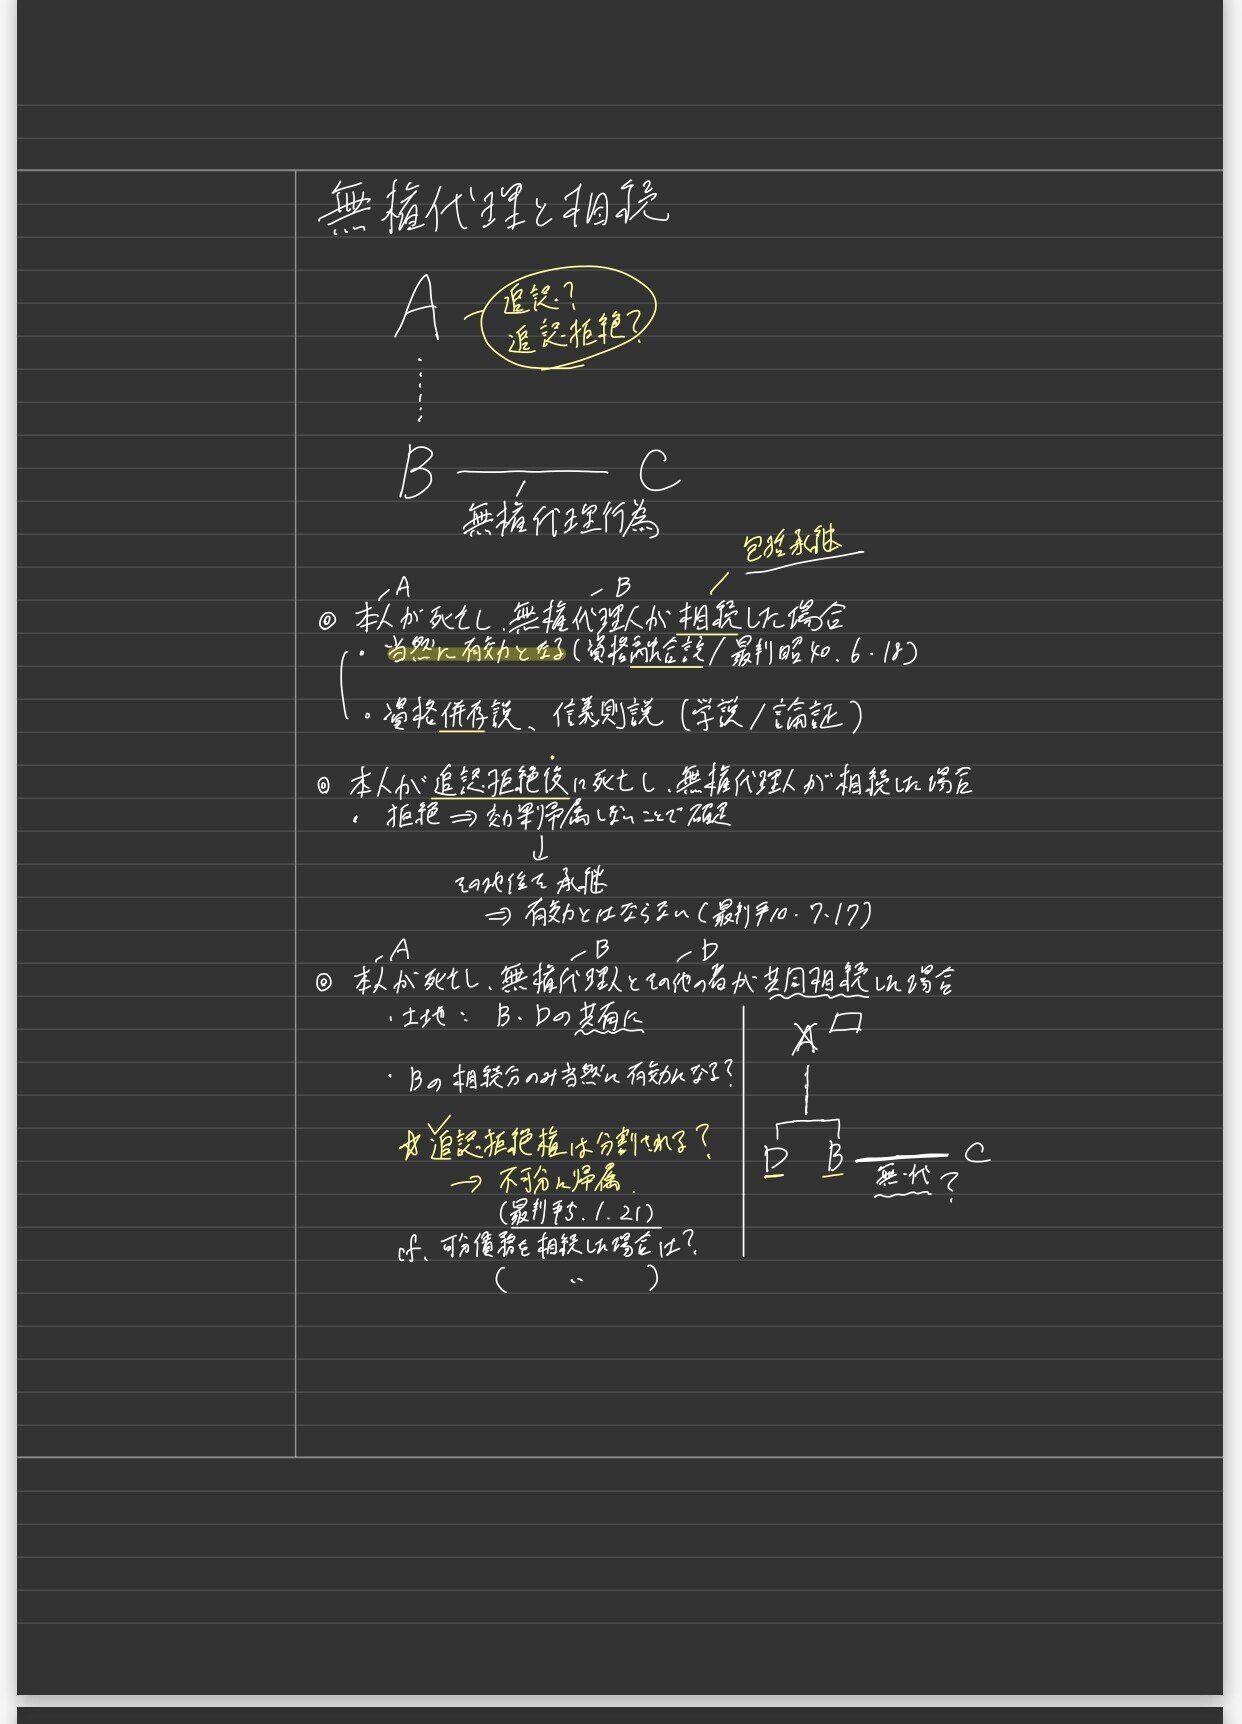 無権代理と相続
A
追認?
追認拒絶?
B
C
無権代理行為
包括承継
A
B
◎ 本人が死亡し、無権代理人が相続した場合
・当然に有効となる(資格融合説/最判昭40.6.18)
・資格併存説、信義則説(学説/論証)
◎ 本人が追認拒絶後に死亡し、無権代理人が相続した場合
・拒絶⇒効果帰属しないことで確定
↓
その地位を承継
⇒有効とはならない(最判平10.7.17)
A
B
D
◎ 本人が死亡し、無権代理人とその他の者が共同相続した場合
・土地: B・Dの共有に
・Bの相続分のみ当然に有効になる?
☆追認拒絶権は分割される?
→ 不可分に帰属.
(最判平5.1.21)
cf. 可分債務を相続した場合は?
( 〃 )
A
D
B
C
無・代?